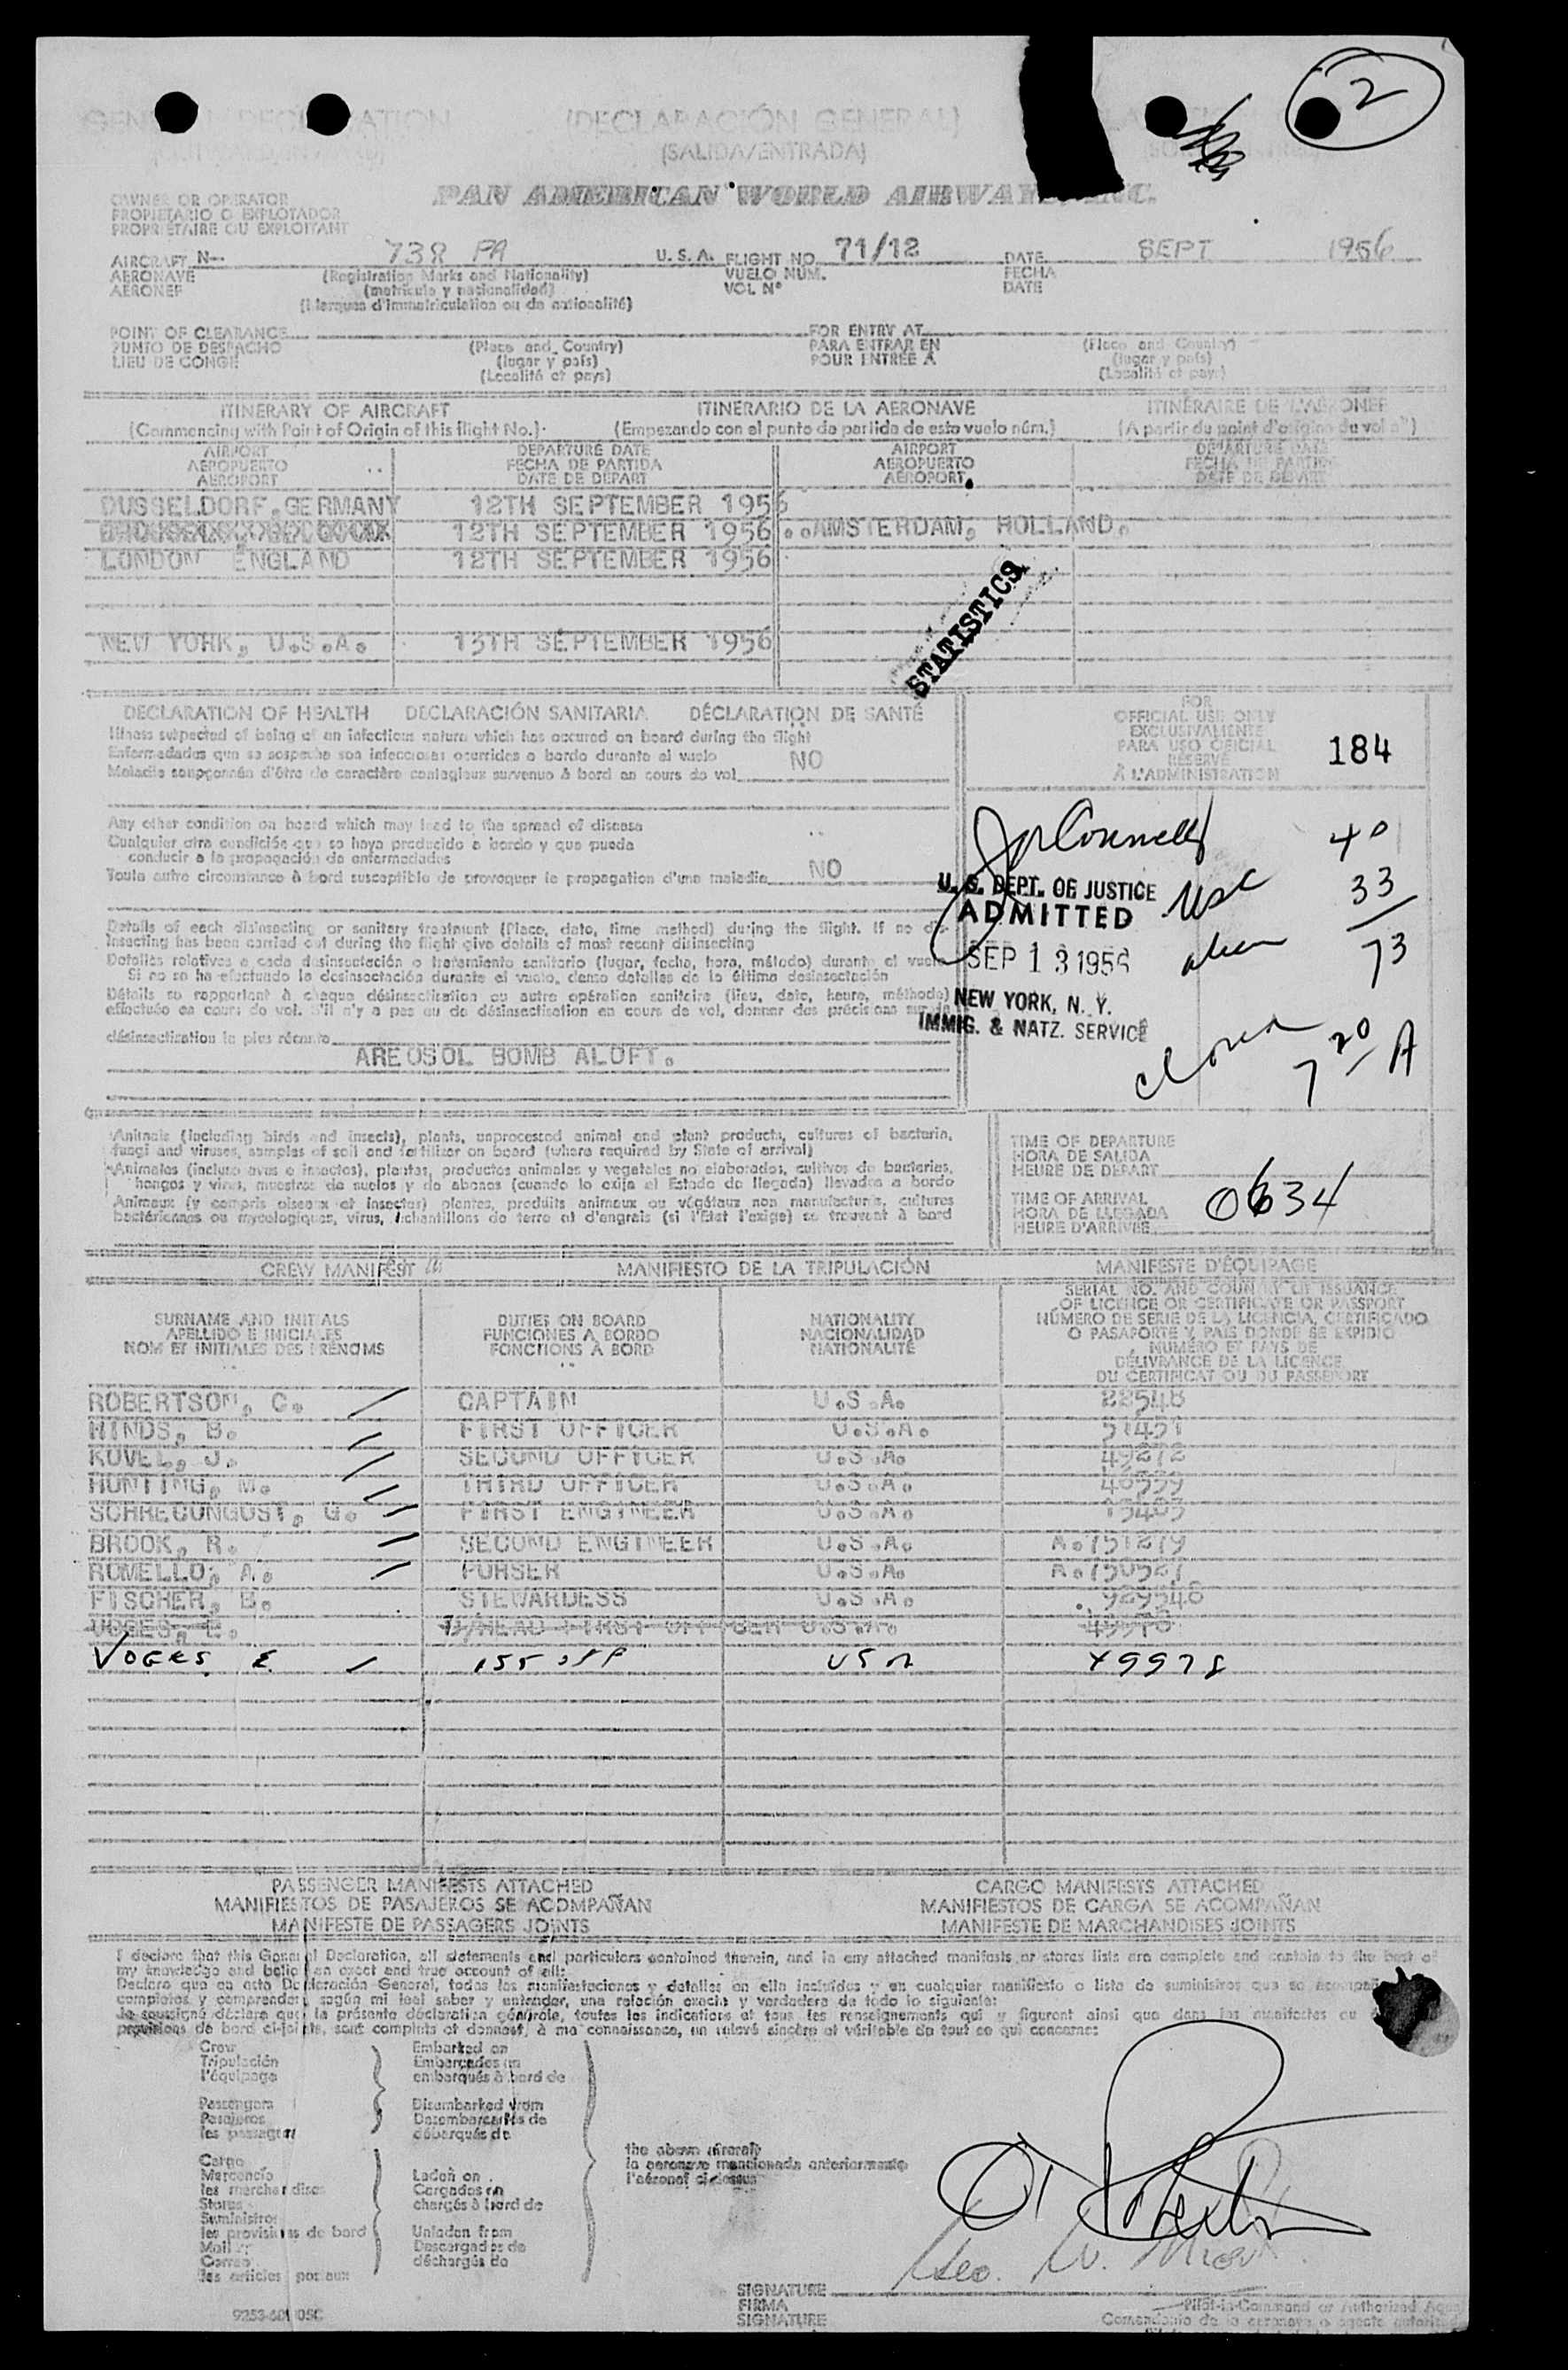 2
(DECLARACIÓN GENERAL)
(SALIDA/ENTRADA)
OWNER OR OPERATOR
PROPIETARIO O EXPLOTADOR
PROPRIÉTAIRE OU EXPLOITANT
PAN AMERICAN WORLD AIRWAYS, INC.
AIRCRAFT N-- 738 PA U.S.A. FLIGHT NO. 71/12 DATE SEPT 1956
AERONAVE (Registration Marks and Nationality) VUELO NÚM. FECHA
AERONEF (matrícula y nacionalidad) VOL Nº DATE
(Marques d'immatriculation ou de nationalité)
POINT OF CLEARANCE FOR ENTRY AT
PUNTO DE DESPACHO (Place and Country) PARA ENTRAR EN (Place and Country)
LIEU DE CONGE (lugar y país) POUR ENTRÉE A (lugar y país)
(Localité et pays) (Localité et pays)
ITINERARY OF AIRCRAFT ITINERARIO DE LA AERONAVE ITINÉRAIRE DE L'AERONEF
(Commencing with Point of Origin of this flight No.) (Empezando con el punto de partida de este vuelo núm.) (A partir du point d'origine du vol nº)
AIRPORT DEPARTURE DATE AIRPORT DEPARTURE DATE
AEROPUERTO FECHA DE PARTIDA AEROPUERTO FECHA DE PARTIDA
AÉROPORT DATE DE DEPART AÉROPORT DATE DE DEPART
DUSSELDORF.GERMANY 12TH SEPTEMBER 1956
12TH SEPTEMBER 1956 ..AMSTERDAM, HOLLAND.
LONDON ENGLAND 12TH SEPTEMBER 1956
STATISTICS
NEW YORK, U.S.A. 13TH SEPTEMBER 1956
DECLARATION OF HEALTH DECLARACIÓN SANITARIA DÉCLARATION DE SANTÉ
Illness suspected of being of an infectious nature which has occured on board during the flight
Enfermedades que se sospeche son infecciosas ocurridas a bordo durante el vuelo NO
Maladie soupçonnée d'être de caractère contagieux survenue à bord en cours de vol
FOR
OFFICIAL USE ONLY
EXCLUSIVAMENTE
PARA USO OFICIAL
RÉSERVÉ
À L'ADMINISTRATION
184
Any other condition on board which may lead to the spread of disease
Cualquier otra condición que se haya producido a bordo y que pueda
conducir a la propagación de enfermedades
Toute autre circonstance à bord susceptible de provoquer la propagation d'une maladie NO
40
U. S. DEPT. OF JUSTICE
ADMITTED
SEP 13 1956
NEW YORK, N. Y.
IMMIG. & NATZ. SERVICE
usc 33
alien 73
7 20 A
Details of each disinsecting or sanitary treatment (Place, date, time method) during the flight. If no dis-
insecting has been carried out during the flight give details of most recent disinsecting
Detalles relativos a cada desinsectación o tratamiento sanitario (lugar, fecha, hora, método) durante el vuelo
Si no se ha efectuado la desinsectación durante el vuelo, dense detalles de la última desinsectación
Détails se rapportant à chaque désinsectisation ou autre opération sanitaire (lieu, date, heure, méthode)
effectuée en cours de vol. S'il n'y a pas eu de désinsectisation en cours de vol, donner des précisions sur la
désinsectisation la plus récente
AREOSOL BOMB ALOFT.
Animals (including birds and insects), plants, unprocessed animal and plant products, cultures of bacteria,
fungi and viruses, samples of soil and fertilizer on board (where required by State of arrival)
Animales (incluso aves e insectos), plantas, productos animales y vegetales no elaborados, cultivos de bacterias,
hongos y virus, muestras de suelos y de abonos (cuando lo exija el Estado de llegada) llevados a bordo
Animaux (y compris oiseaux et insectes) plantes, produits animaux ou végétaux non manufacturés, cultures
bactériennes ou mycologiques, virus, échantillons de terre et d'engrais (si l'Etat l'exige) se trouvant à bord
TIME OF DEPARTURE
HORA DE SALIDA
HEURE DE DÉPART
TIME OF ARRIVAL
HORA DE LLEGADA 0634
HEURE D'ARRIVÉE
CREW MANIFEST MANIFIESTO DE LA TRIPULACIÓN MANIFESTE D'ÉQUIPAGE
SURNAME AND INITIALS DUTIES ON BOARD NATIONALITY
APELLIDO E INICIALES FUNCIONES A BORDO NACIONALIDAD
NOM ET INITIALES DES PRÉNOMS FONCTIONS A BORD NATIONALITÉ
SERIAL NO. AND COUNTRY OF ISSUANCE
OF LICENCE OR CERTIFICATE OR PASSPORT
NÚMERO DE SERIE DE LA LICENCIA, CERTIFICADO
O PASAPORTE Y PAIS DONDE SE EXPIDIÓ
NUMÉRO ET PAYS DE
DÉLIVRANCE DE LA LICENCE
DU CERTIFICAT OU DU PASSEPORT
ROBERTSON, C. CAPTAIN U.S.A. 22548
HINDS, B. FIRST OFFICER U.S.A. 51451
KOVEL, J. SECOND OFFICER U.S.A. 49272
HUNTING, M. THIRD OFFICER U.S.A.
SCHRECONGOST, G. FIRST ENGINEER U.S.A.
BROOK, R. SECOND ENGINEER U.S.A. A.151279
ROMELLO, A. PURSER U.S.A. A.150527
FISCHER, B. STEWARDESS U.S.A. 929540
VOGES, E.
VOGES E. 1ST OFF USA 49978
PASSENGER MANIFESTS ATTACHED CARGO MANIFESTS ATTACHED
MANIFIESTOS DE PASAJEROS SE ACOMPAÑAN MANIFIESTOS DE CARGA SE ACOMPAÑAN
MANIFESTE DE PASSAGERS JOINTS MANIFESTE DE MARCHANDISES JOINTS
I declare that this General Declaration, all statements and particulars contained therein, and in any attached manifests or stores lists are complete and contain to the best of
my knowledge and belief an exact and true account of all:
Declaro que en esta Declaración General, todas las manifestaciones y detalles en ella incluidos y en cualquier manifiesto o lista de suministros que se acompaña
completos y comprenden, según mi leal saber y entender, una relación exacta y verdadera de todo lo siguiente:
Je soussigné déclare que la présente déclaration générale, toutes les indications et tous les renseignements qui y figurent ainsi que dans les manifestes ou
provisions de bord ci-joints, sont complets et donnent, à ma connaissance, un relevé sincère et véritable de tout ce qui concerne:
Crew Embarked on
Tripulación Embarcados en
l'équipage embarqués à bord de
Passengers Disembarked from
Pasajeros Desembarcados de
les passagers débarqués de
the above aircraft
la aeronave mencionada anteriormente
l'aéronef ci-dessus
Cargo
Mercancía Laden on
les marchandises Cargados en
Stores chargés à bord de
Suministros
les provisions de bord Unladen from
Mail Descargados de
Correo déchargés de
les articles postaux
SIGNATURE
FIRMA Pilot-in-Command or Authorized Agent
SIGNATURE Comandante de la aeronave o agente autorizado